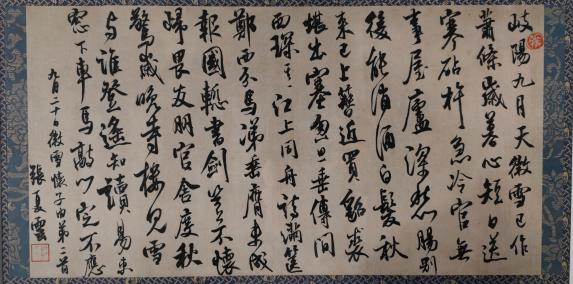 岐陽九月天微雪已作
蕭條歲暮心短日送
寒砧杵急冷官無
事屋廬深愁腸別
後能消酒白髮秋
來已上簪近買貂裘
堪出塞忽思乘傳問
西琛江上同舟詩滿篋
鄭西分馬涕垂膺未成
報國慙書劍豈不懷
歸畏友朋官舍度秋
驚歲晚寺樓見雪
与誰登遙知讀易東
窓下車馬敲门定不應
九月二十日微雪懷子由弟二首
張夏雲